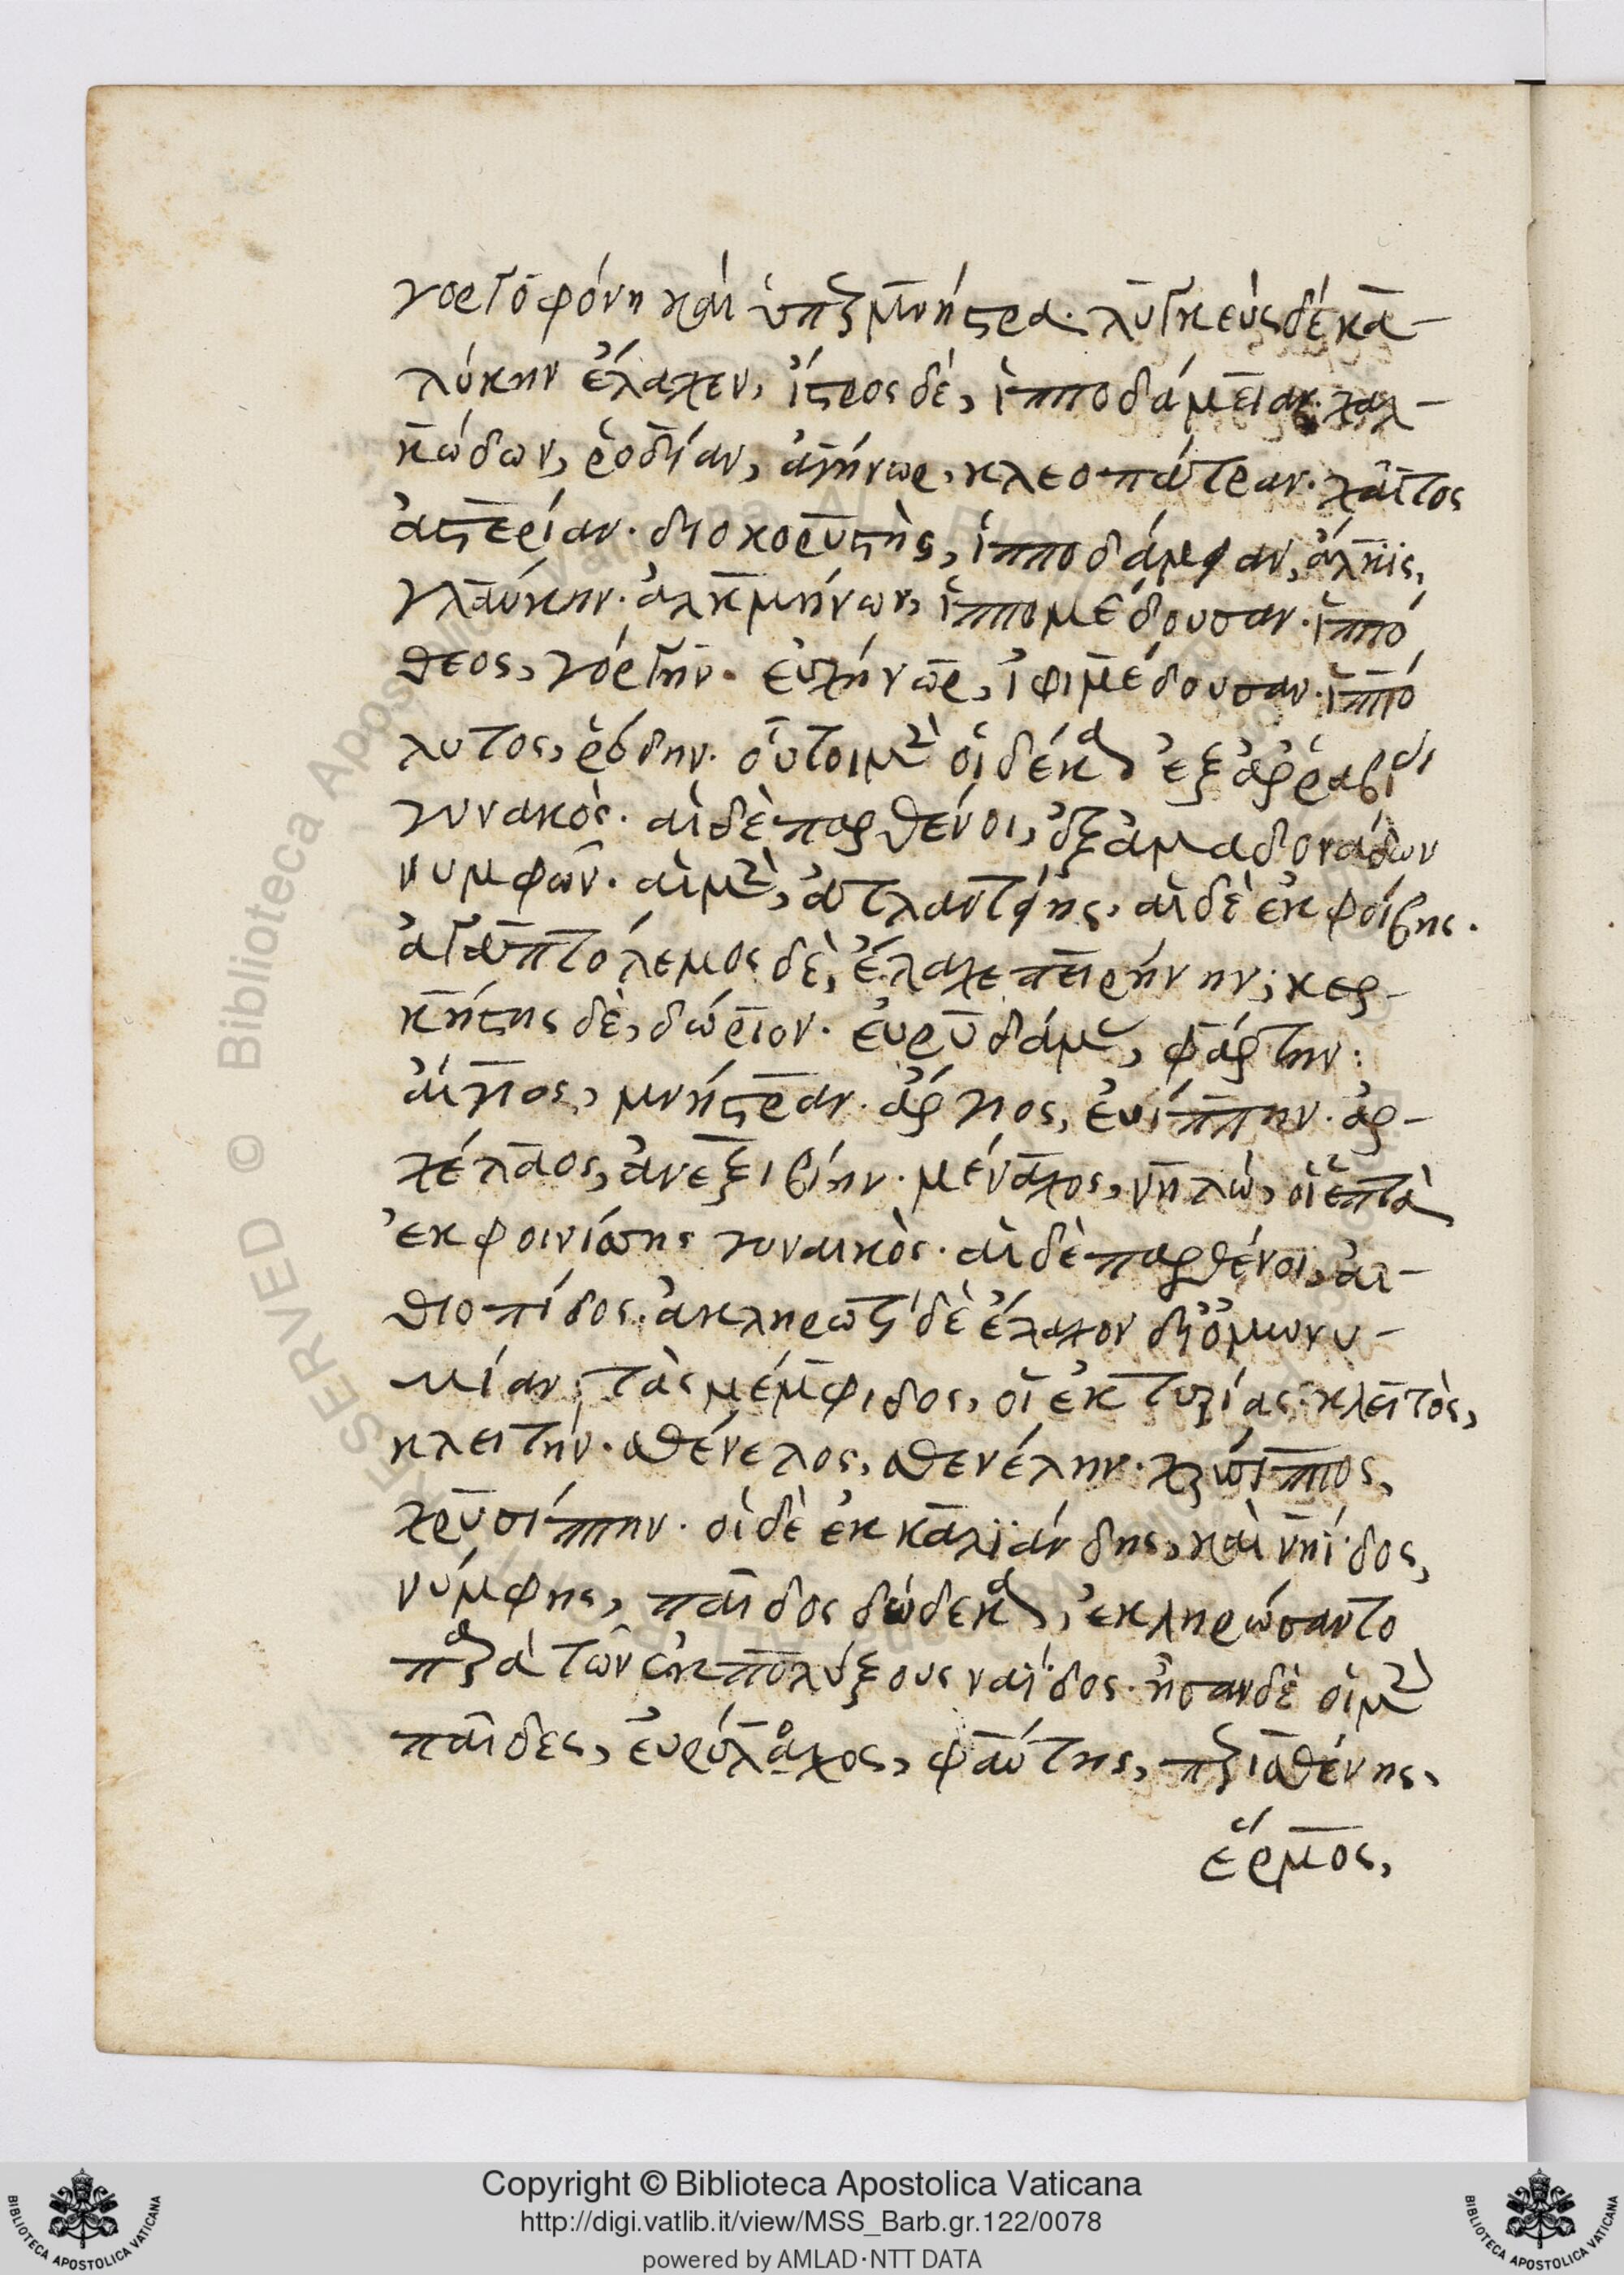 γοργοφόνη καὶ ὑπερμνήστρα. λυγκεὺς δὲ κα-
λύκην ἔλαχεν, ἴστρος δὲ, ἱπποδάμειαν. χαλ-
κώδων, ῥοδίαν, ἀγήνωρ, κλεοπάτραν. χαῖτος
ἀστερίαν. διοκορυστὴς, ἱπποδάμειαν, ἄλκης,
γλαύκην. ἀλκμήνων, ἱππομέδουσαν. ἱππό
θεος, γόργην. εὐχήνωρ, ἰφιμέδουσαν. ἱππό
λυτος, ῥόδην. οὗτοι μὲν οἱ δέκα ἐξ ἀῤῥαβίας
γυνακὸς. αἱ δὲ παρθένοι, ἐξ ἁμαδονάδων
νυμφῶν. αἱ μὲν, ἀτλαντείης, αἱ δὲ ἐκ φοίβης.
ἀγαπτόλεμος δὲ, ἔλαχε πειρήνην, κερ-
κήτης δὲ, δώριον. εὐρυδάμας, φάρτην:
αἴγιος, μνήστραν. ἄργιος, εὐίππην. ἀρ-
χέλαος, ἀνεξιβίην. μέναχος, νηλὼ, οἱ ἑπτὰ
ἐκ φοινίσσης γυναικὸς. αἱ δὲ παρθένοι, αἰ-
θιοπίδος. ἀκληρωτὶ δὲ ἔλαχον δι' ὁμωνυ-
μίαν, τὰς μέμφιδος, οἱ ἐκ τυρίας. κλειτὸς,
κλειτήν. σθένελος, σθενέλην. χρύσιππος,
χρυσίππην. οἱ δὲ ἐκ καλϊάνδης, καὶ νηΐδος,
νύμφης, παῖδος δώδεκα, ἐκληρώσαντο
περὰ τῶν ἐκ πολύξους ναΐδος. ἦσαν δὲ οἱ μὲν
παῖδες, εὐρύλοχος, φάντης, περισθένης,
ἕρμος,
Copyright © Biblioteca Apostolica Vaticana
http://digi.vatlib.it/view/MSS_Barb.gr.122/0078
powered by AMLAD·NTT DATA